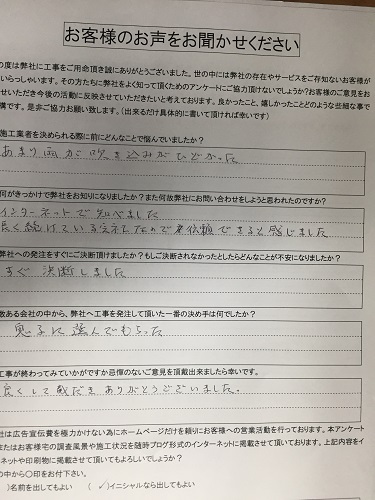 お客様のお声をお聞かせください
の度は弊社に工事をご用命頂き誠にありがとうございました。世の中には弊社の存在やサービスをご存知ないお客様が
いらっしゃいます。その方たちに弊社をよく知って頂くためのアンケートにご協力頂けないでしょうか?お客様のご意見をお
せいただき今後の活動に反映させていただきたいと考えております。良かったこと、嬉しかったことどのような些細な事で
構です。是非ご協力お願い致します。(出来るだけ具体的に書いて頂ければ幸いです)
施工業者を決められる際に前にどんなことで悩んでいましたか?
あまり雨が吹き込みがひどかった
何がきっかけで弊社をお知りになりましたか?また何故弊社にお問い合わせをしようと思われたのですか?
インターネットで知べました
長く続けている会社なので信頼できると感じました
弊社への発注をすぐにご決断頂けましたか?もしご決断されなかったとしたらどんなことが不安になりましたか?
すぐ 決断しました
数ある会社の中から、弊社へ工事を発注して頂いた一番の決め手は何でしたか?
息子に選んでもらった
工事が終わってみていかがですか忌憚のないご意見を頂戴出来ましたら幸いです。
良くして戴だきありがとうございました。
社は広告宣伝費を極力かけない為にホームページだけを頼りにお客様への営業活動を行っております。本アンケート
またはお客様宅の調査風景や施工状況を随時ブログ形式のインターネットに掲載させて頂いております。上記内容をイ
ネットや印刷物に掲載させて頂いてもよろしいでしょうか?
の中から〇印をお付下さい。
)名前を出してもよい (✓)イニシャルなら出してもよい